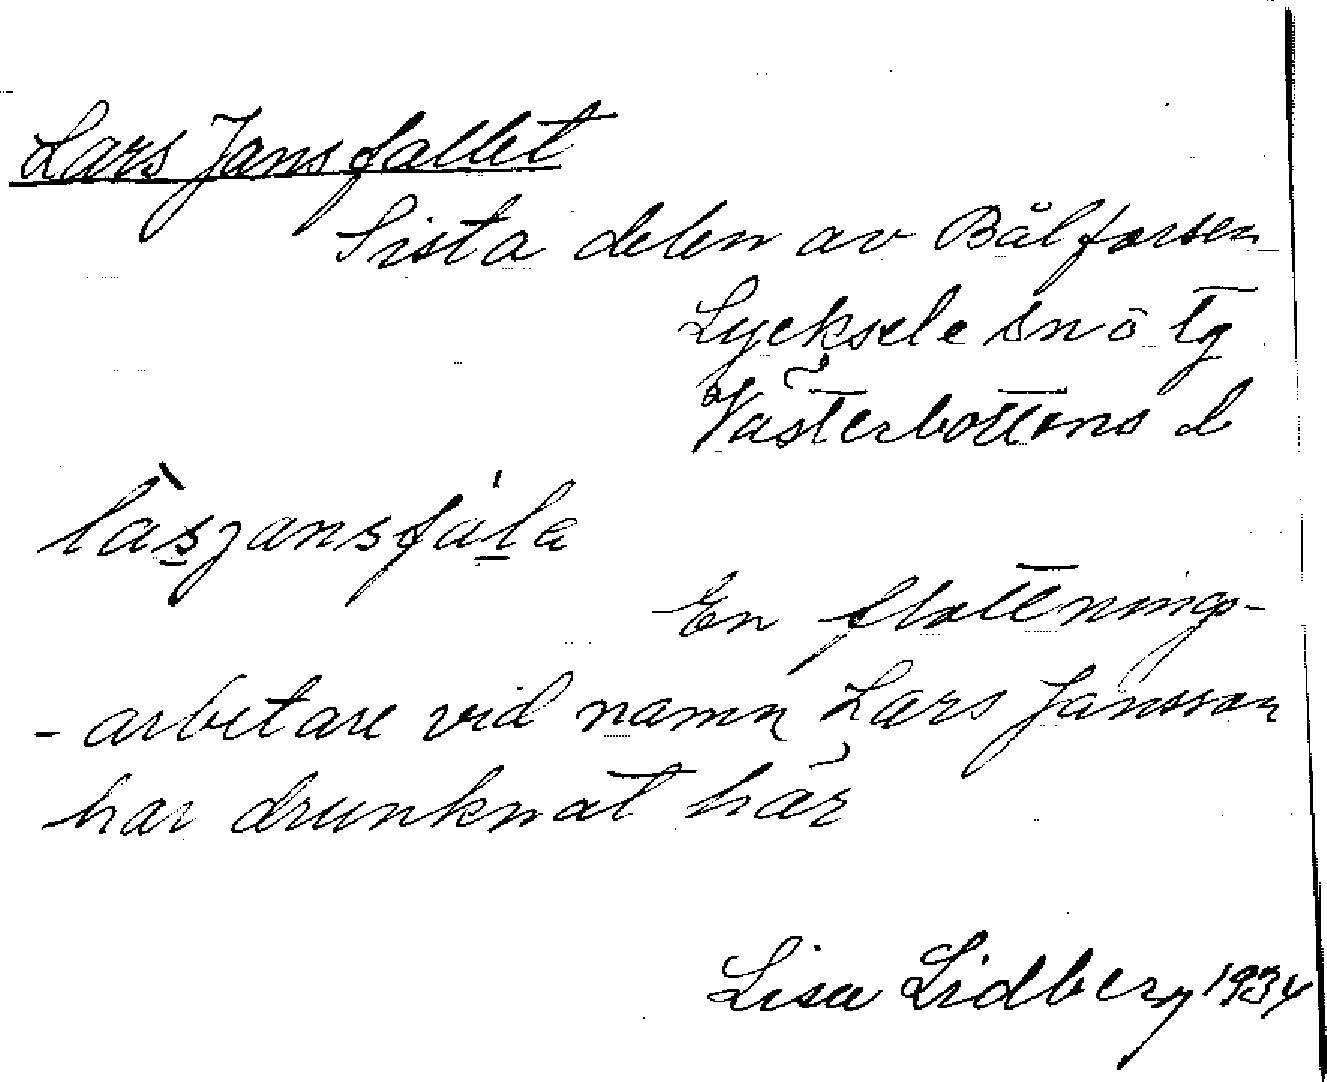 Lars Jansfallet
Sista delen av Bålforsen
Lycksele sn o tg
Västerbottens l
làsjansfála
En flottnings-
-arbetare vid namn Lars Jansson
har drunknat här
Lisa Lidberg 1934